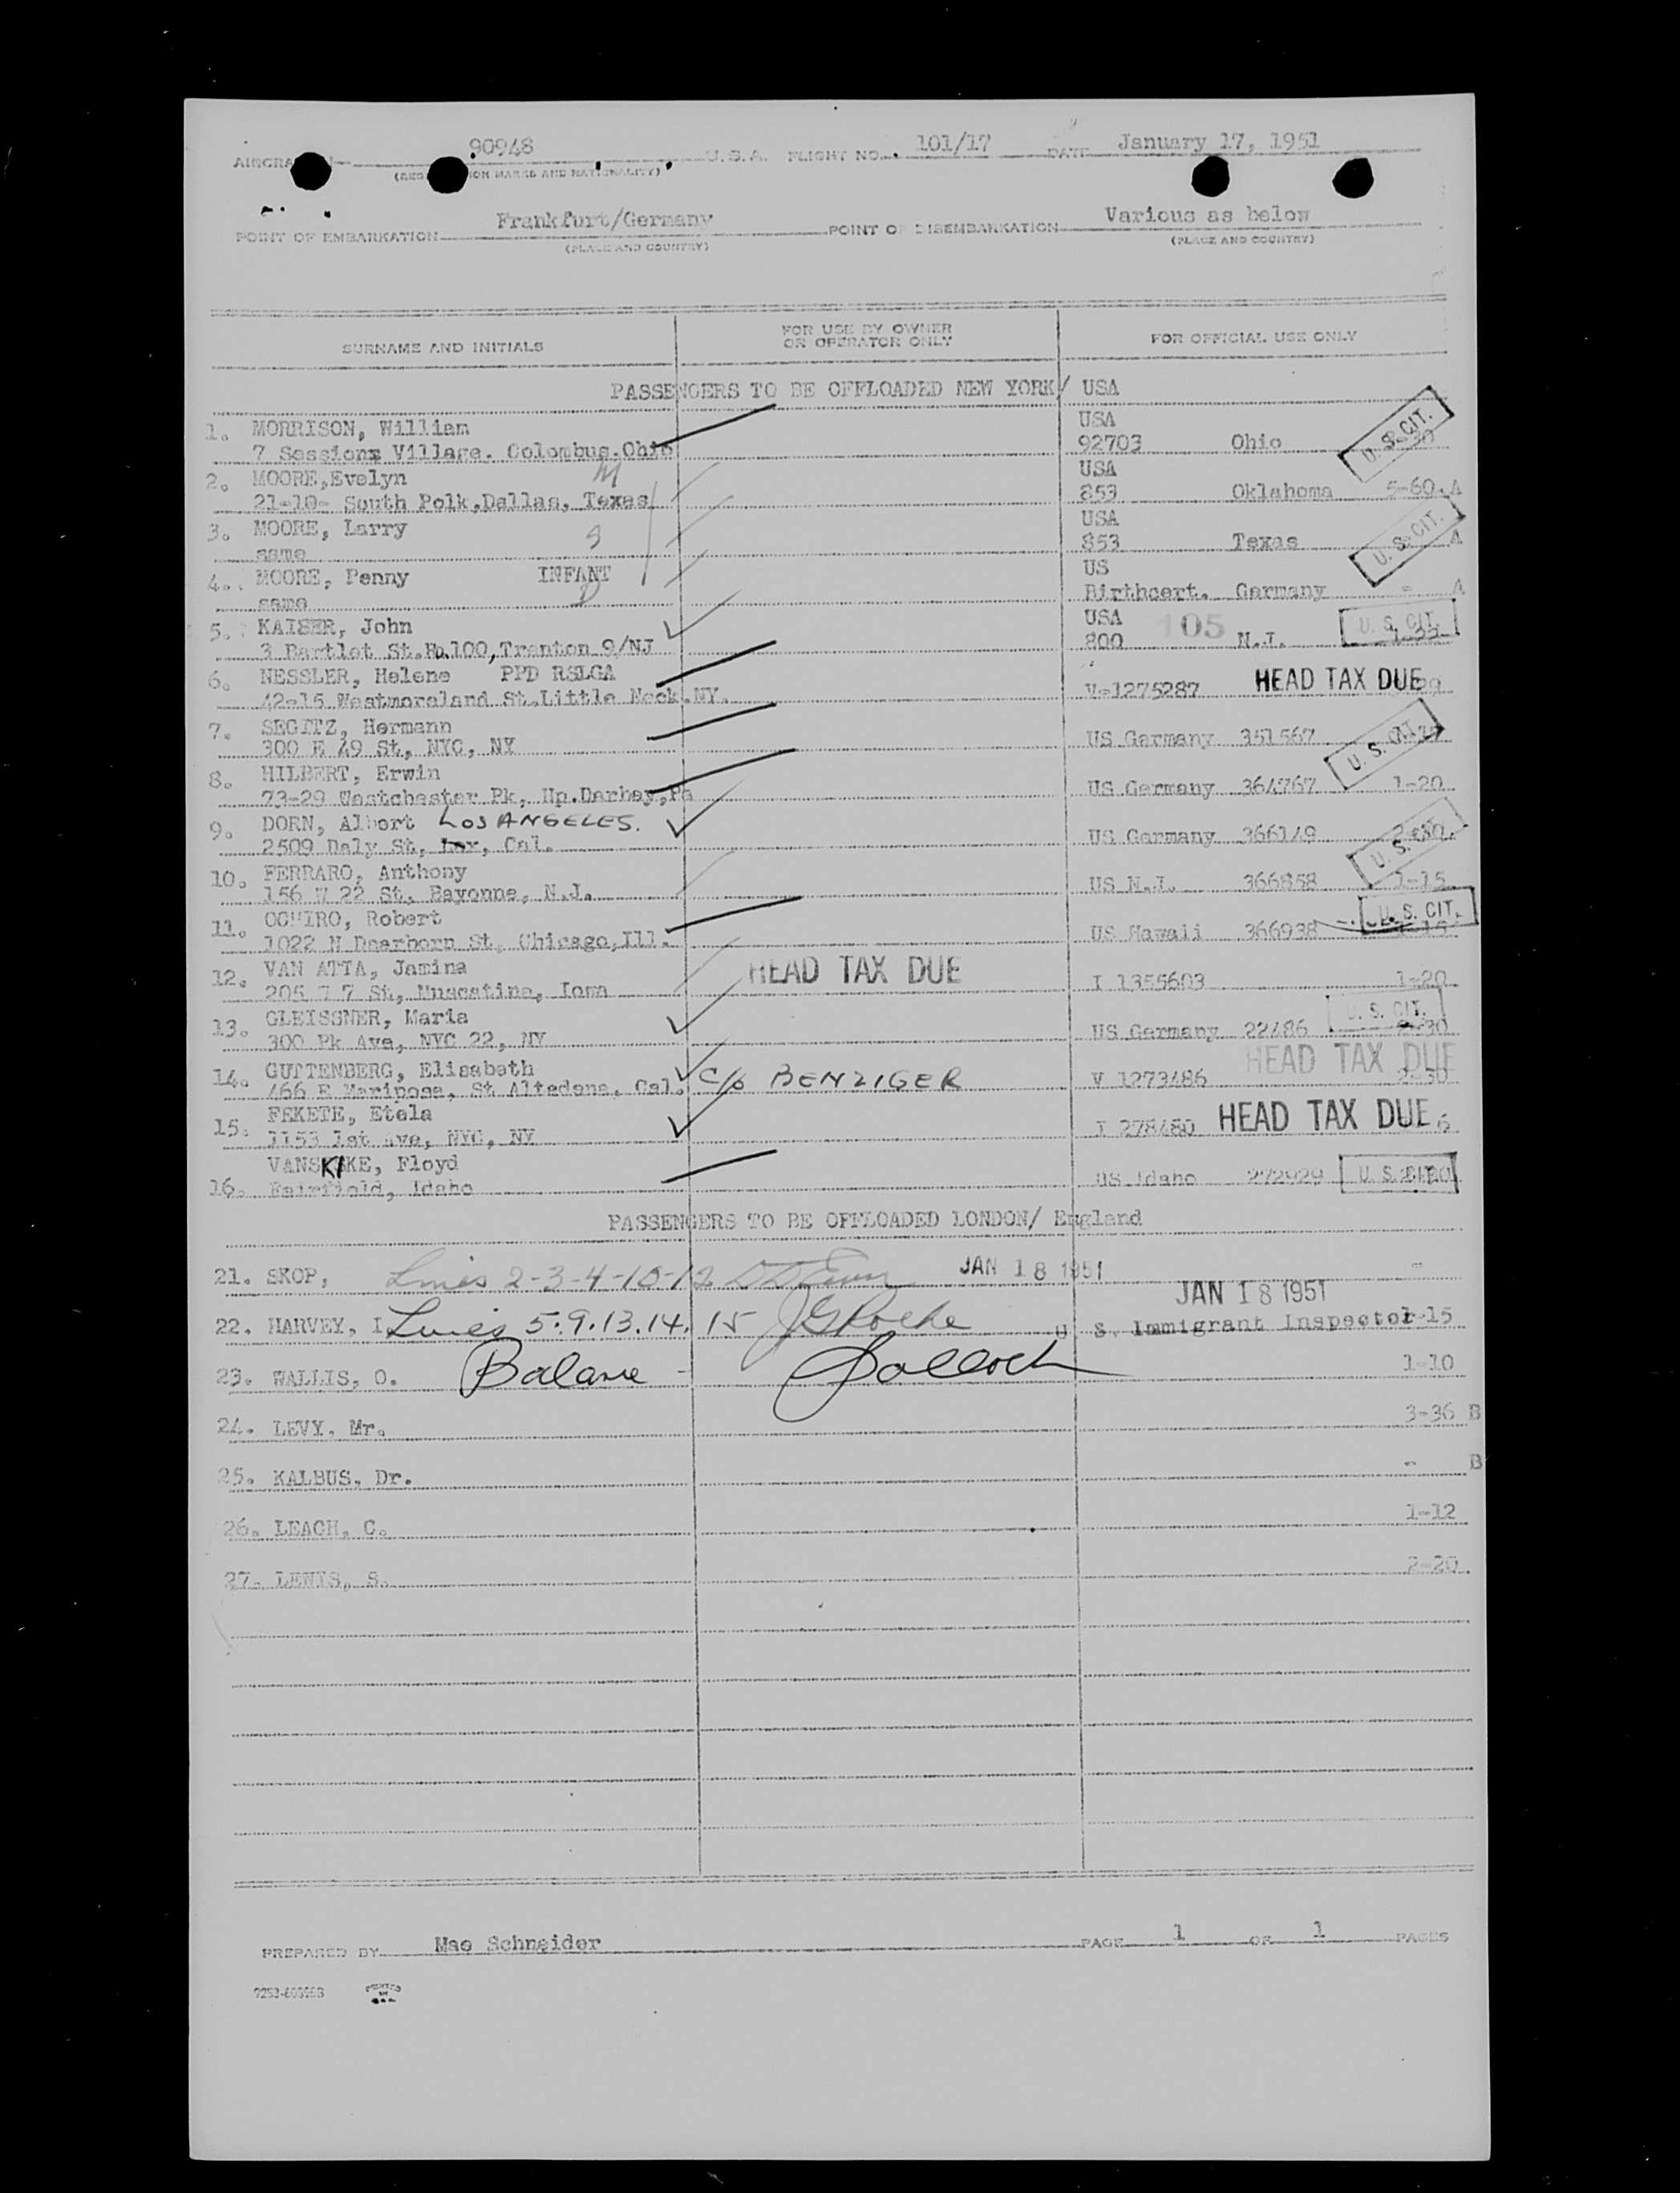 90948 U.S.A. FLIGHT NO. 101/17 DATE January 17, 1951
Frankfurt/Germany Various as below
POINT OF EMBARKATION POINT OF DISEMBARKATION
(PLACE AND COUNTRY) (PLACE AND COUNTRY)
SURNAME AND INITIALS FOR USE BY OWNER OR OPERATOR ONLY FOR OFFICIAL USE ONLY
PASSENGERS TO BE OFFLOADED NEW YORK/ USA
1. MORRISON, William USA
7 Sessions Village. Colombus.Ohio 92703 Ohio U. S. CIT.
2. MOORE,Evelyn M USA
21-10- South Polk,Dallas, Texas 853 Oklahoma 5-60 A
3. MOORE, Larry S USA
same 853 Texas U. S. CIT. A
4. MOORE, Penny INFANT D US
same Birthcert. Germany - A
5. KAISER, John USA
3 Bartlet St.Rm.100,Trenton 9/NJ 800 105 N.J. U. S. CIT.
6. NESSLER, Helene PPD RSLGA
42-15 Westmoreland St.Little Neck.NY. V-1275287 HEAD TAX DUE
7. SEGITZ, Hermann
300 E 49 St, NYC, NY US Germany 351567 U. S. CIT.
8. HILBERT, Erwin
73-29 Westchester Pk, Up.Darbey,Pa US Germany 364767 1-20
9. DORN, Albert LOS ANGELES.
2509 Daly St, Cal. US Germany 366149 2-30 U. S.
10. FERRARO, Anthony
156 W 22 St, Bayonne, N.J. US N.J. 366858 1-15
11. OSHIRO, Robert
1022 N Dearborn St, Chicago,Ill. US Hawaii 366938 U. S. CIT.
12. VAN ATTA, Jamina HEAD TAX DUE
205 W 7 St, Muscatine, Iowa I 1355603 1-20
13. GLEISSNER, Maria
300 Pk Ave, NYC 22, NY US Germany 22486 U. S. CIT. 2-30
14. GUTTENBERG, Elisabeth HEAD TAX DUE
466 E Mariposa, St Altadena, Cal. c/o BENZIGER V 1273486 2-30
15. FEKETE, Etela
1153 1st Ave, NYC, NY I 278480 HEAD TAX DUE 6
VANSKIKE, Floyd
16. Fairfield, Idaho US Idaho 272929 U. S. CIT.
PASSENGERS TO BE OFFLOADED LONDON/ England
21. SKOP, Lines 2-3-4-10-12 JAN 18 1951 -
JAN 18 1951
22. HARVEY, I. Lines 5.9.13.14. 15 JG Roche U. S. Immigrant Inspector 15
23. WALLIS, O. Balance - 1-10
24. LEVY, Mr. 3-36 B
25. KALBUS, Dr. - B
26. LEACH, C. 1-12
27. LEWIS, S. 2-20
PREPARED BY Mae Schneider PAGE 1 OF 1 PAGES
PRINTED IN